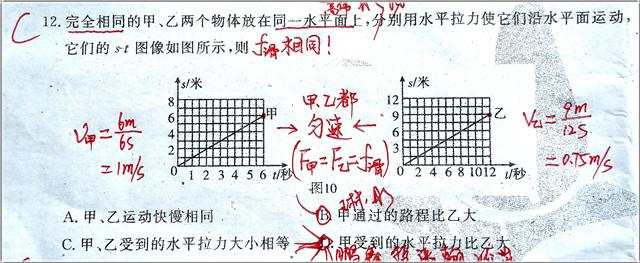 C 12. 完全相同的甲、乙两个物体放在同一水平面上,分别用水平拉力使它们沿水平面运动,
它们的 s-t 图像如图所示,则 f滑相同!
s/米
8
6
4
2
0
1 2 3 4 5 6 t/秒
甲
V甲=6m/6s
=1m/s
甲乙都
匀速
(F甲=F乙=f滑)
图10
s/米
12
9
6
3
0
2 4 6 8 10 12 t/秒
乙
V乙=9m/12s
=0.75m/s
A. 甲、乙运动快慢相同
B. 甲通过的路程比乙大
C. 甲、乙受到的水平拉力大小相等
D. 甲受到的水平拉力比乙大